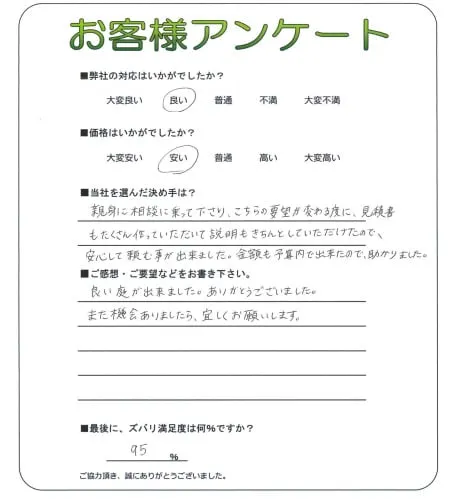 お客様アンケート
■弊社の対応はいかがでしたか？
大変良い　良い　普通　不満　大変不満
■価格はいかがでしたか？
大変安い　安い　普通　高い　大変高い
■当社を選んだ決め手は？
親身に相談に乗って下さり、こちらの要望が変わる度に、見積書
もたくさん作っていただいて説明もきちんとしていただけたので、
安心して頼む事が出来ました。金額も予算内で出来たので、助かりました。
■ご感想・ご要望などをお書き下さい。
良い庭が出来ました。ありがとうございました。
また機会ありましたら、宜しくお願いします。
■最後に、ズバリ満足度は何%ですか？
95 %
ご協力頂き、誠にありがとうございました。